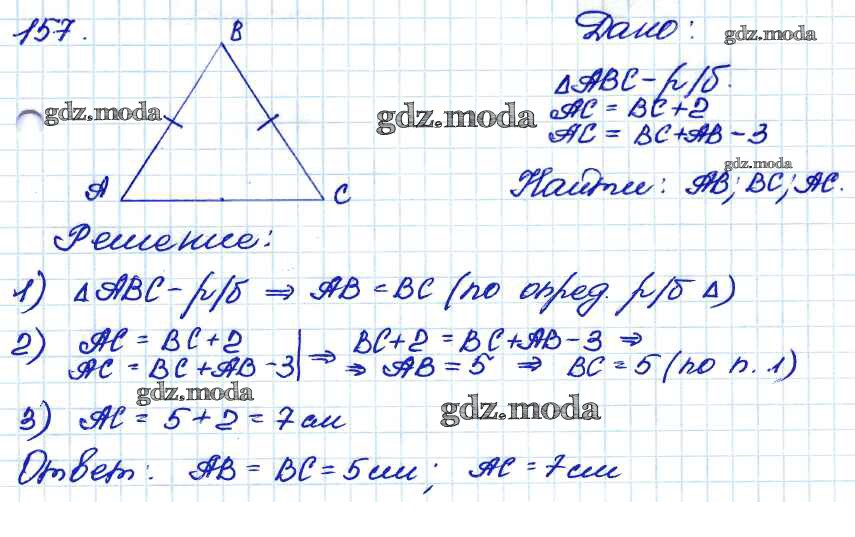 157.
B
A
C
Дано:
gdz.moda
△ABC - р/б.
AC = BC + 2
AC = BC + AB - 3
gdz.moda
gdz.moda
gdz.moda
Найти: AB; BC; AC.
Решение:
1) △ABC - р/б ⇒ AB = BC (по опред. р/б △)
2) AC = BC + 2 | ⇒ BC + 2 = BC + AB - 3 ⇒
AC = BC + AB - 3 | ⇒ AB = 5 ⇒ BC = 5 (по п. 1)
gdz.moda
3) AC = 5 + 2 = 7 см
gdz.moda
Ответ: AB = BC = 5 см; AC = 7 см